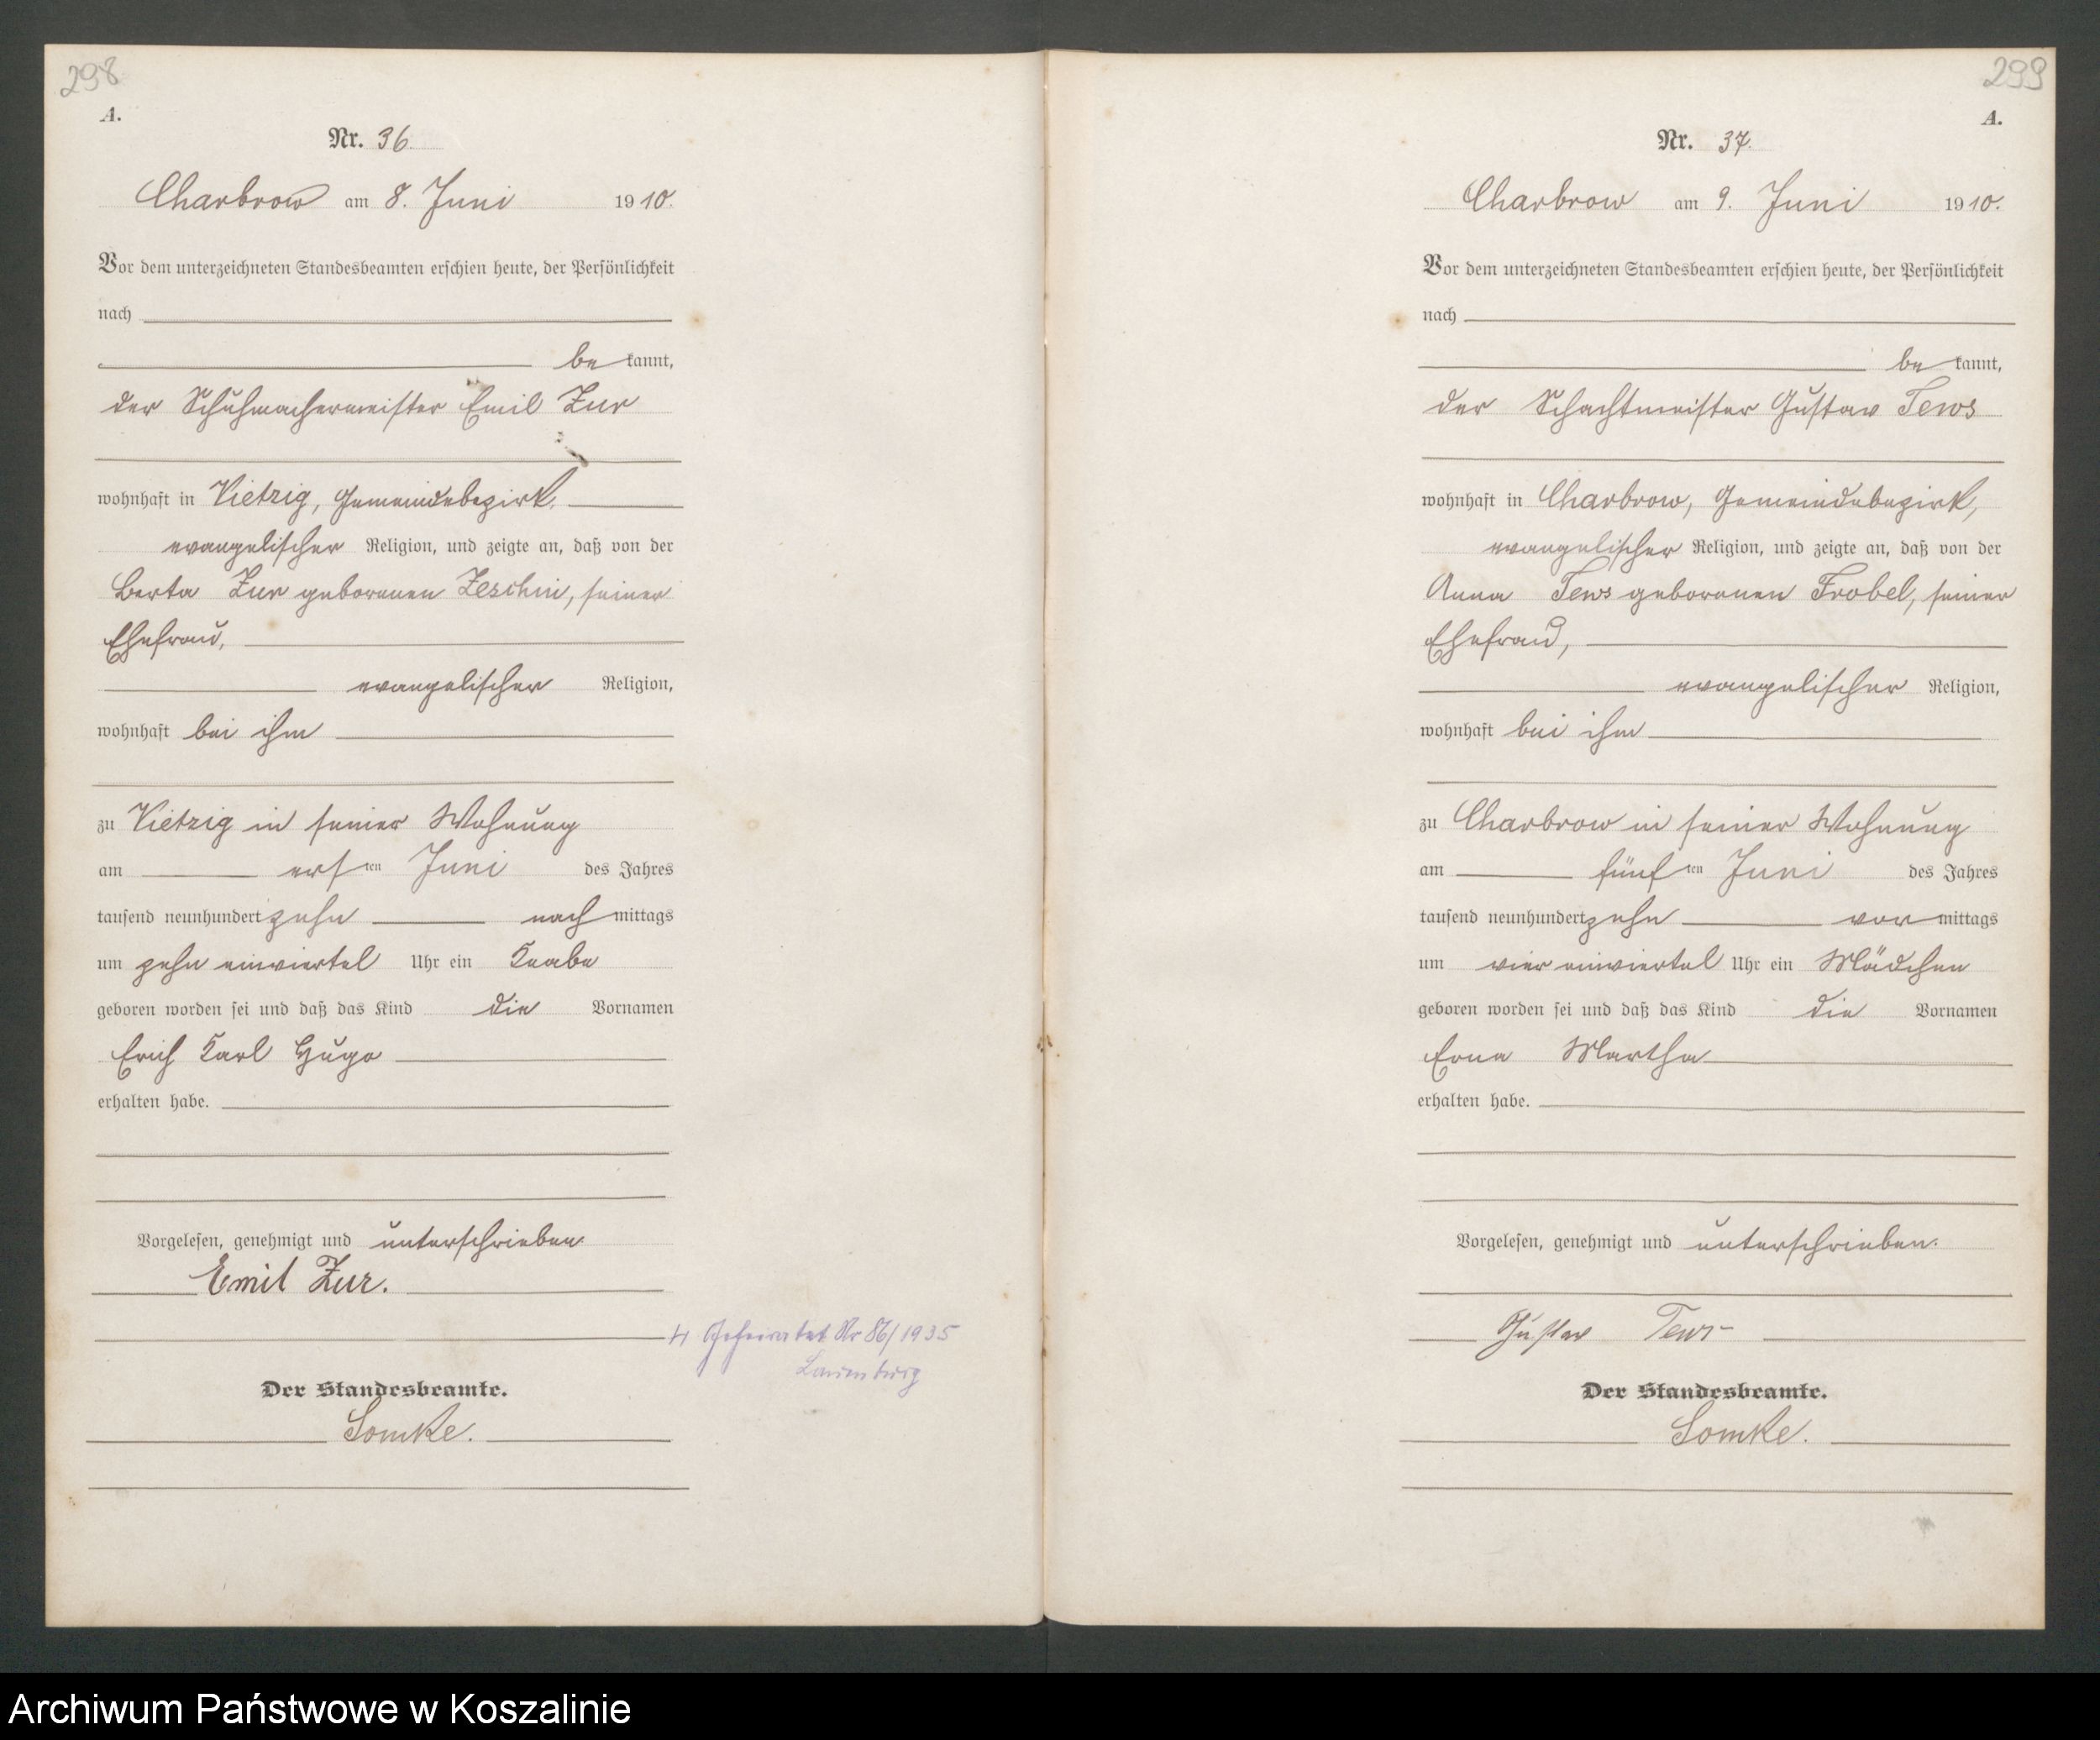 298
A.
Nr. 36.
Charbrow am 8. Juni 1910.
Vor dem unterzeichneten Standesbeamten erschien heute, der Persönlichkeit
nach
be kannt,
der Schuhmachermeister Emil Zur
wohnhaft in Vietzig, Gemeindebezirk,
evangelischer Religion, und zeigte an, daß von der
Berta Zur geborenen Zeschin, seiner
Ehefrau,
evangelischer Religion,
wohnhaft bei ihm
zu Vietzig in seiner Wohnung
am ersten Juni des Jahres
tausend neunhundert zehn nach mittags
um zehn einviertel Uhr ein Knabe
geboren worden sei und daß das Kind die Vornamen
Erich Karl Hugo
erhalten habe.
Vorgelesen, genehmigt und unterschrieben.
Emil Zur.
Geheiratet Nr 86/1935
Lauenburg
Der Standesbeamte.
Somke.
299
A.
Nr. 37.
Charbrow am 9. Juni 1910.
Vor dem unterzeichneten Standesbeamten erschien heute, der Persönlichkeit
nach
be kannt,
der Schachtmeister Gustav Tews
wohnhaft in Charbrow, Gemeindebezirk,
evangelischer Religion, und zeigte an, daß von der
Anna Tews geborenen Frobel, seiner
Ehefrau,
evangelischer Religion,
wohnhaft bei ihm
zu Charbrow in seiner Wohnung
am fünften Juni des Jahres
tausend neunhundert zehn vor mittags
um vier einviertel Uhr ein Mädchen
geboren worden sei und daß das Kind die Vornamen
Erna Martha
erhalten habe.
Vorgelesen, genehmigt und unterschrieben.
Gustav Tews
Der Standesbeamte.
Somke.
Archiwum Państwowe w Koszalinie